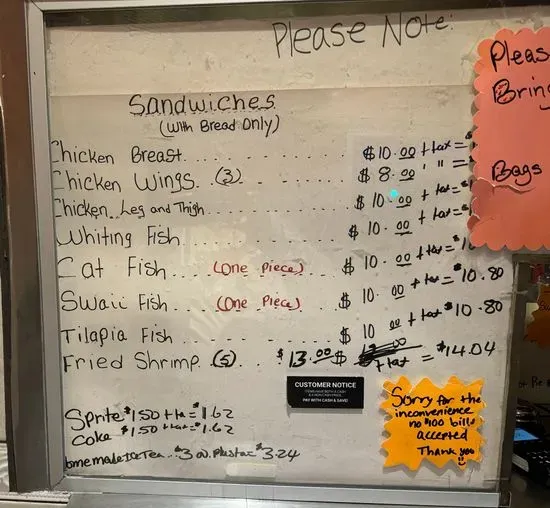 Please Note:
Sandwiches
(With Bread Only)
Chicken Breast $10.00 + tax =
Chicken Wings (3) $8.00 " " =
Chicken Leg and Thigh $10.00 + tax = $1
Whiting Fish $10.00 + tax =
Cat Fish (One Piece) $10.00 + tax = $10
Swaii Fish (One Piece) $10.00 + tax = $10.80
Tilapia Fish $10 00 + tax $10.80
Fried Shrimp (5) $13.00 $ + tax = $14.04
Sprite $1.50 + tax = $1.62
Coke $1.50 + tax = $1.62
omemade Ice Tea $3.00 Plus tax $3.24
CUSTOMER NOTICE
PAY WITH CASH & SAVE!
Sorry for the
inconvenience
no $100 bills
accepted
Thank you
Pleas
Bring
Bags